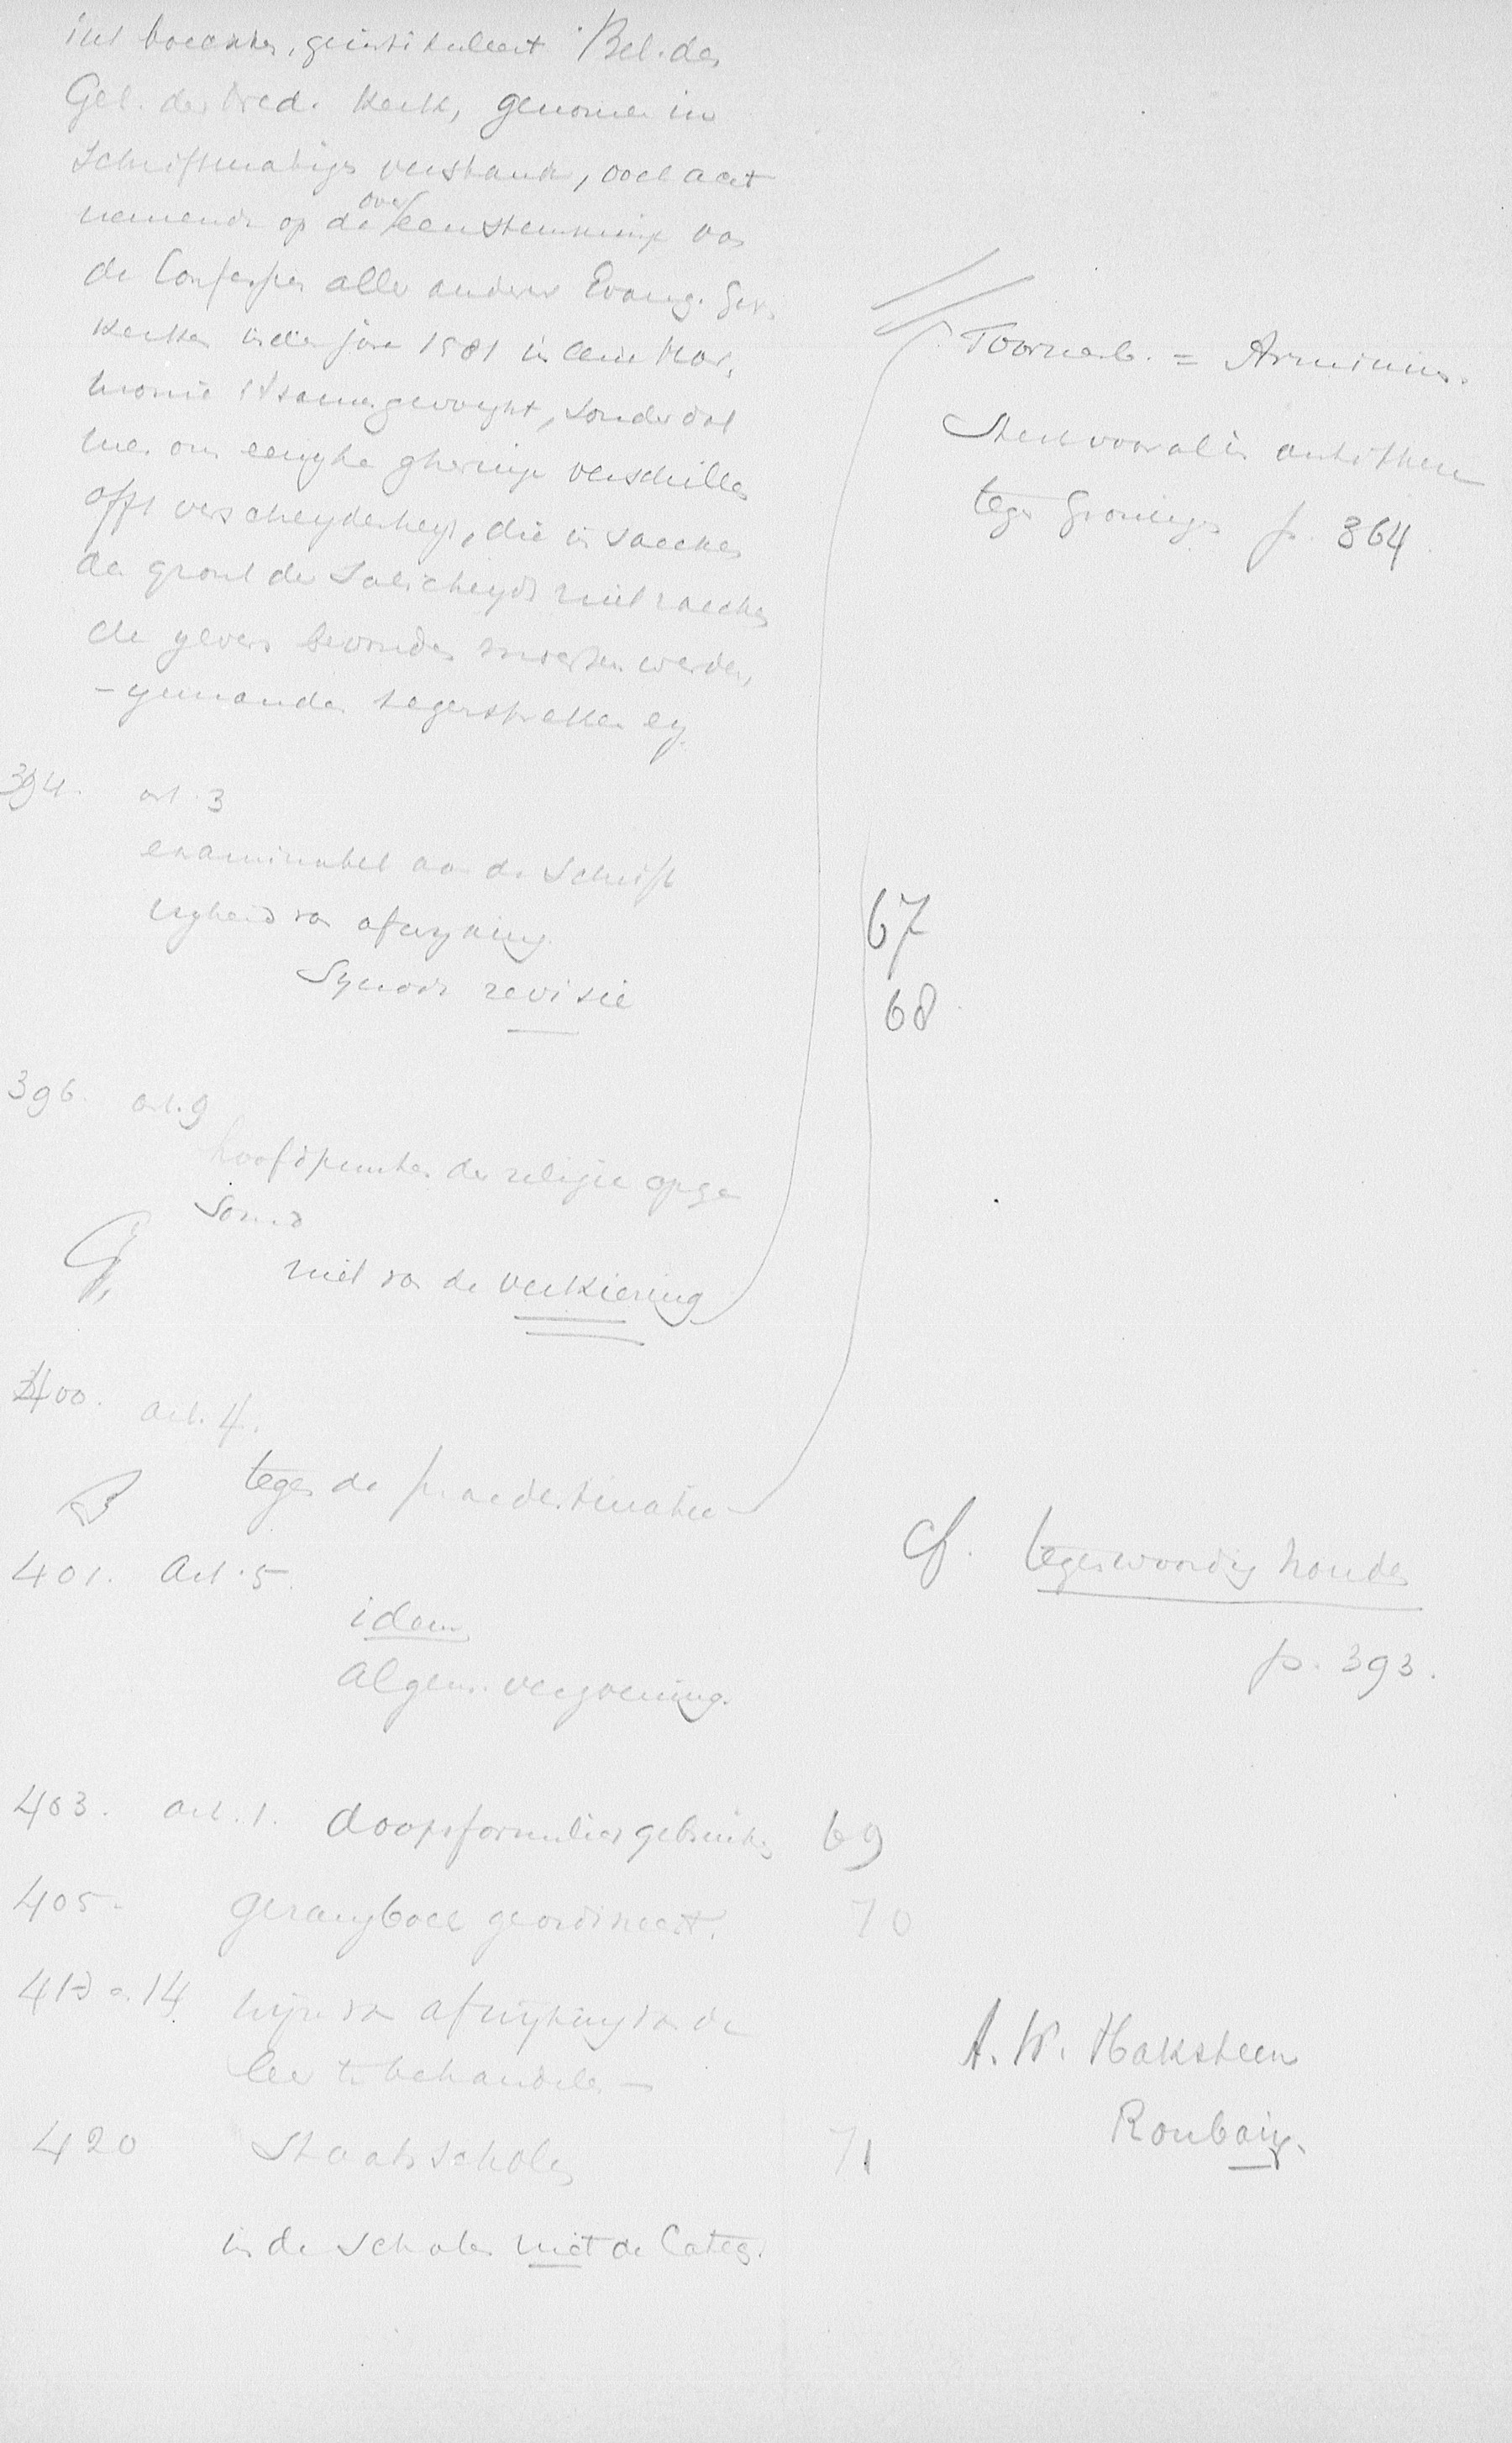 int boecxken, geintituleert Bel. des
Gel. der Ned. Kerk, genomen in
Schriftmatigen verstande, oock acht
nemende op de over eenstemminge van
de Confessien aller anderer Evang. Ger.
Kerken inden jare 1581 in eene Har-
monie t'samengevoeght, sonder dat
men om eenighe gheringe verschillen
offt verscheydenheyt, die in saecken
den gront der Salicheydt niet raeckende
gevonden werden,
- yemanden
394. art. 3
examinabel aan de Schrift
vrijheid van afwijking
Synode revisie
396. art. 9
hoofdpunten der religie opge
somd
niet van de verkiezing
400. art. 4.
tegen de praedestinatie
401. Art. 5.
idem
algem. verzoening.
403. art. 1. doopsformulier gebruiken 69
405. gezangboek geordineert. 70
413 a. 14 wijze van afwijking van de
leer te behandelen -
420 Staatsscholen 71
in de scholen niet de Categ.
Toornenb. = Arminius.
Sterk vooral in antithese
tegen Groningen p. 364.
67
68
cf. tegenwoordig houden
p. 393.
A. W. Haksteen
Roubaix.